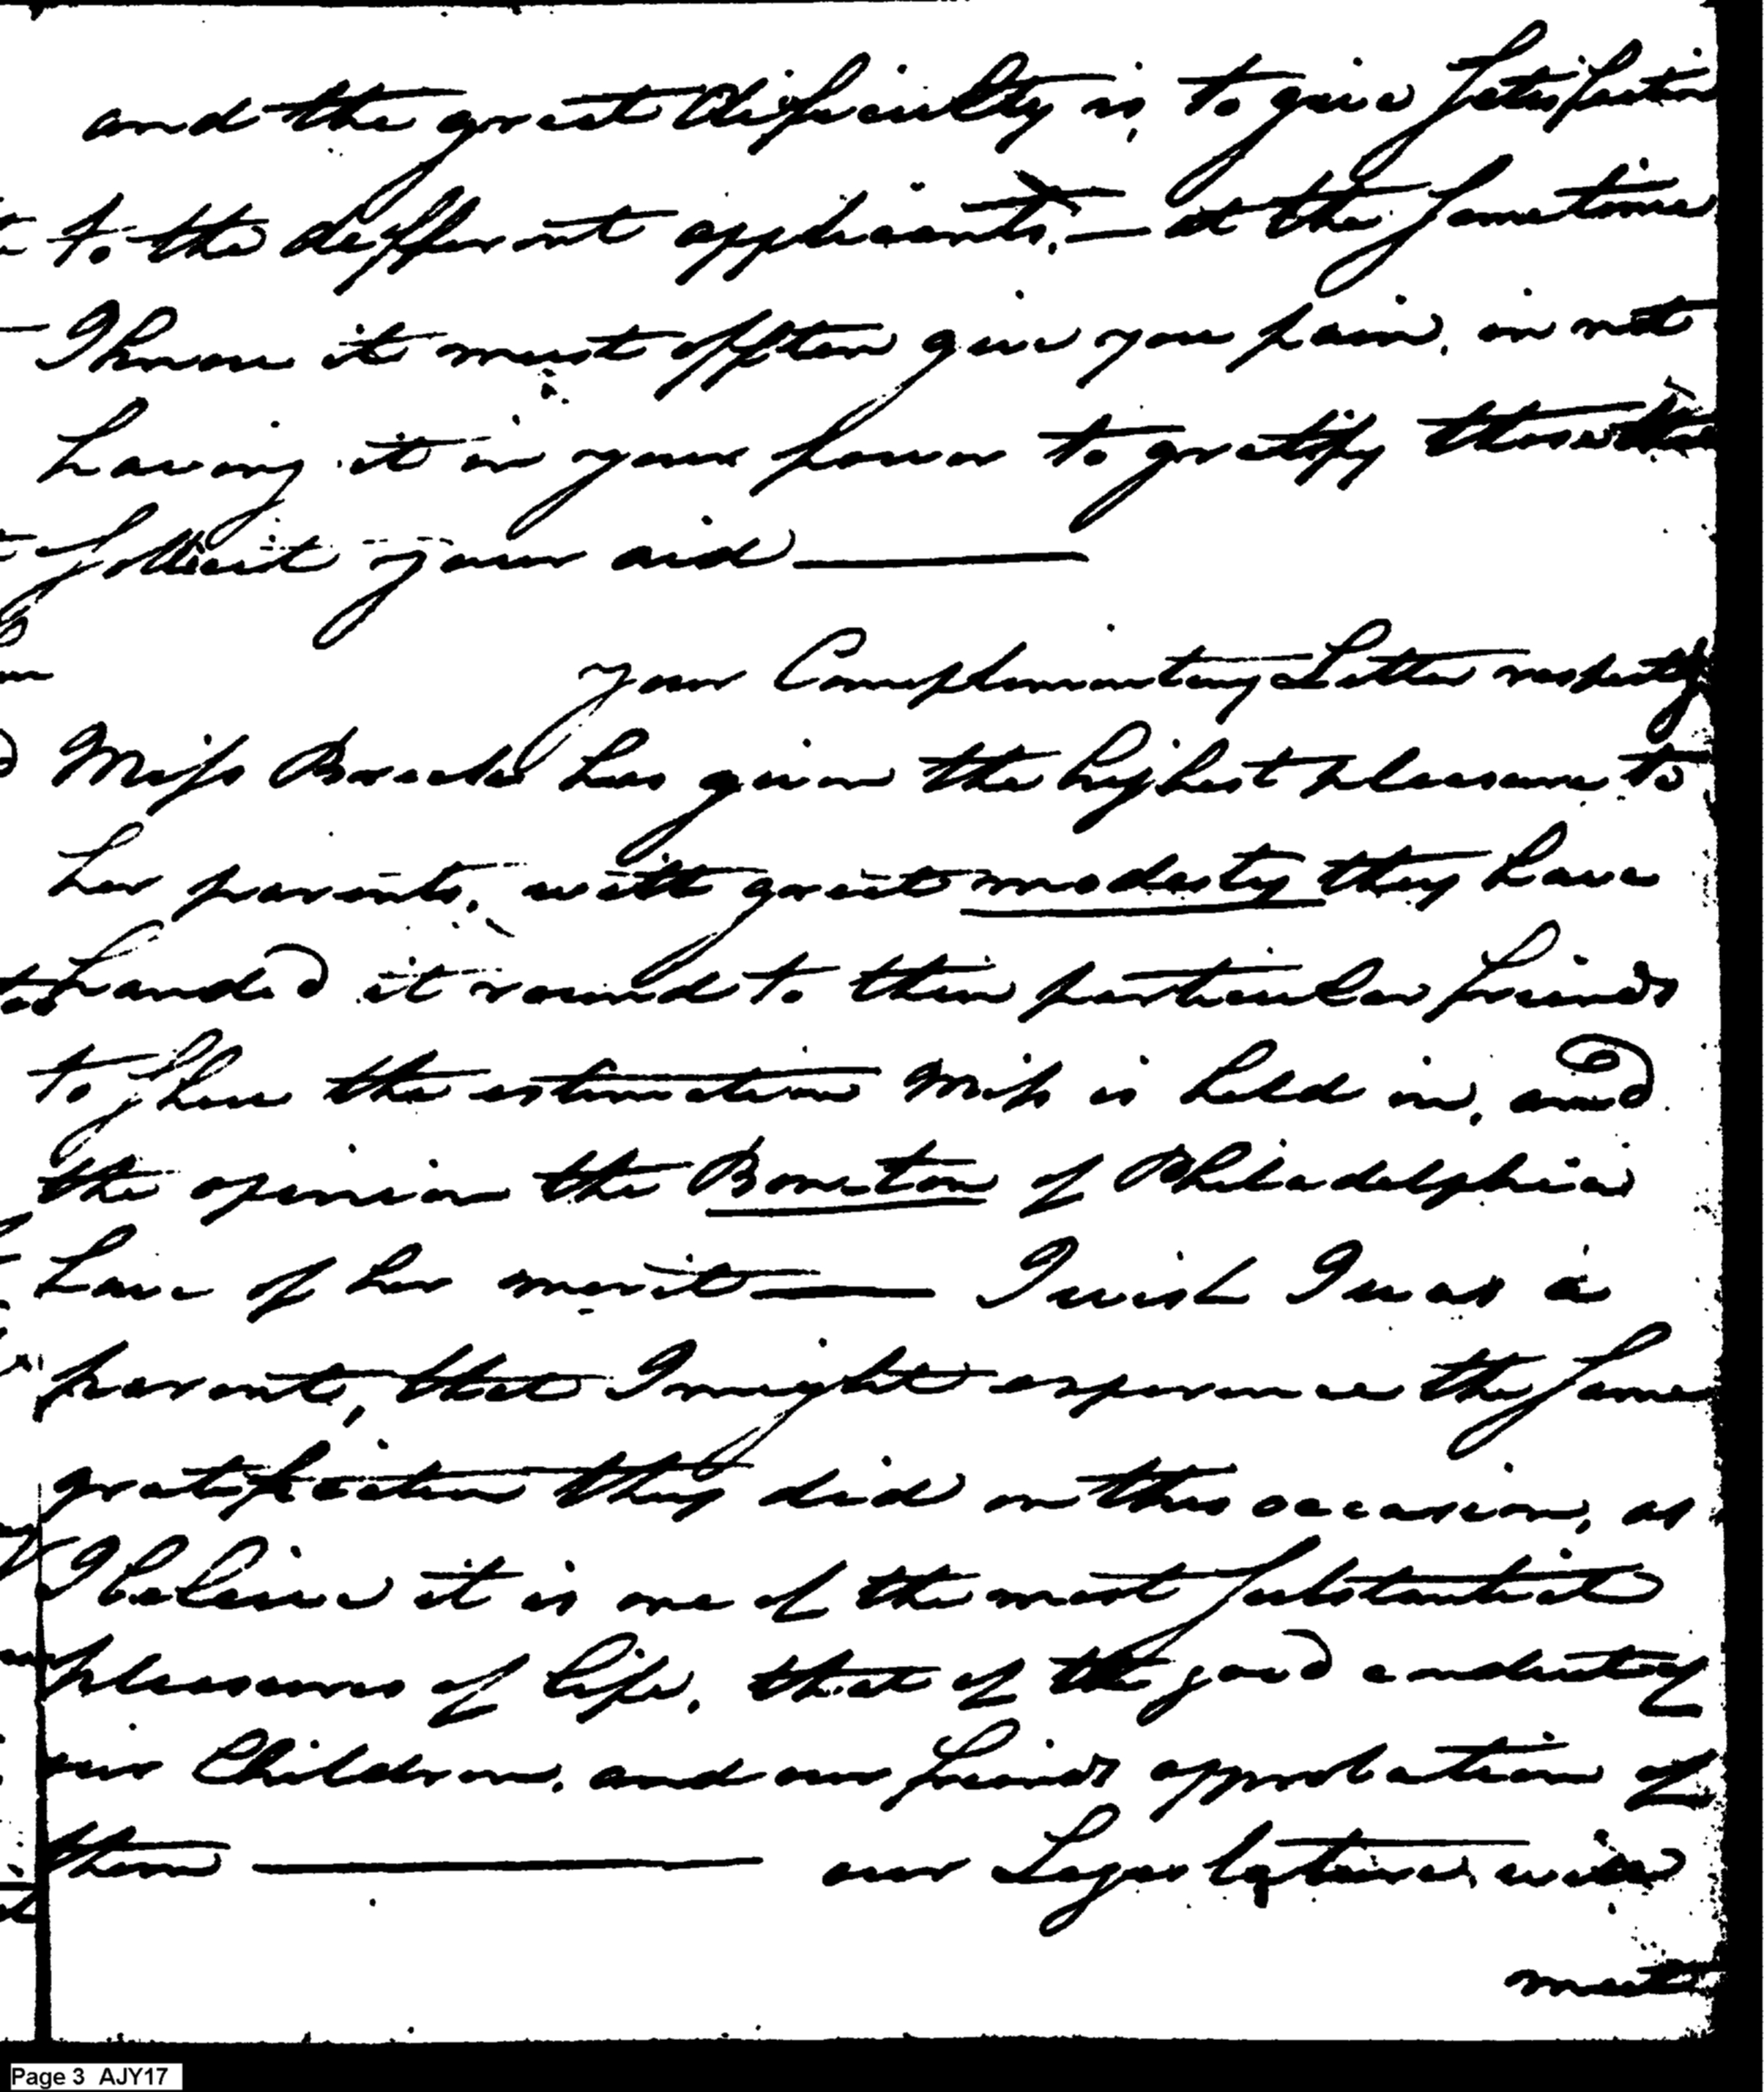 and the great difficulty is, to give satisfaction
to the defferent applicants, — at the same time
I know it must offten give you pain, in not
having it in your power to gratify those who
sollicit your aid —
your Complimentary Letter respectg
Miss has given the highest pleasure to
her parents, with great modesty they have
handed it round to their particular friends
to shew the estimation Miss is held in, and
the opinion the Boneton of Philadelphia
have of her merit — I wish I was a
parent, that I might experience the same
gratification they did on this occasion, as
I believe it is one of the most substantial
pleasures of life, that of the good conduct of
our Children, and our friends approbation of
them — our Legislature will
meet
Page 3 AJY17